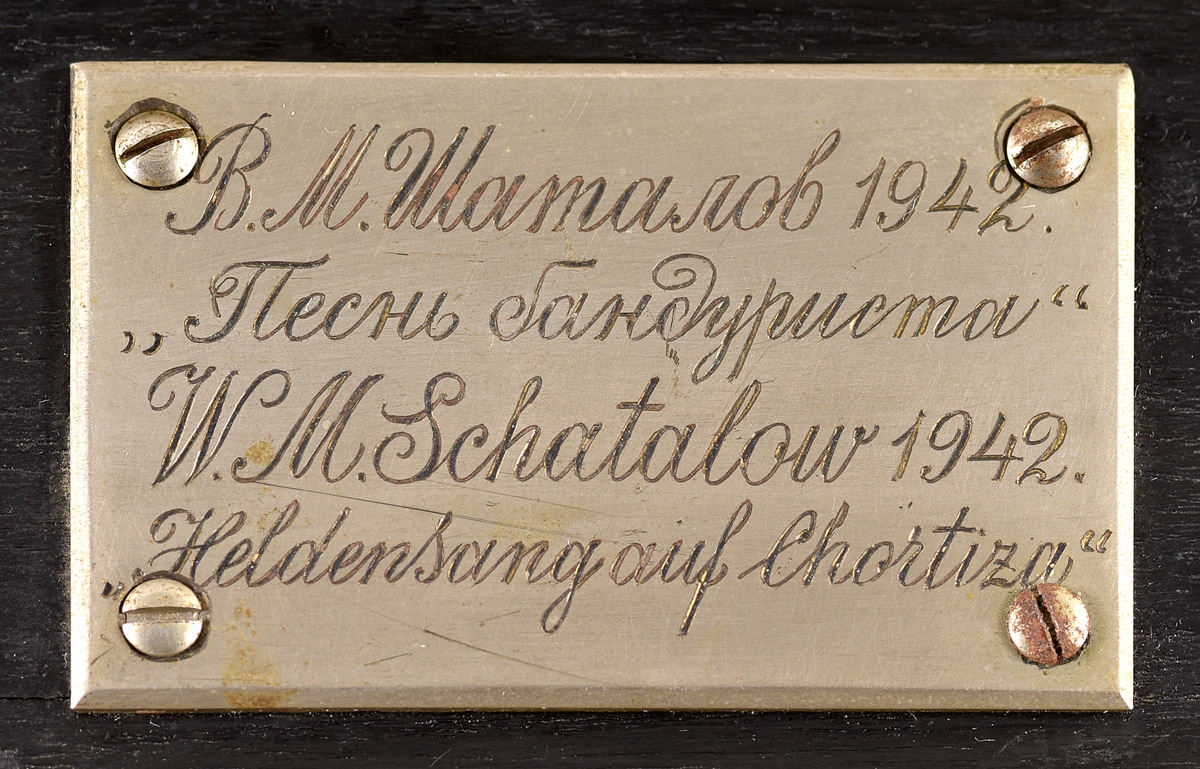 В. М. Шаталов 1942.
„Песнь бандуриста“
W. M. Schatalow 1942.
„Heldensang auf Chortiza“